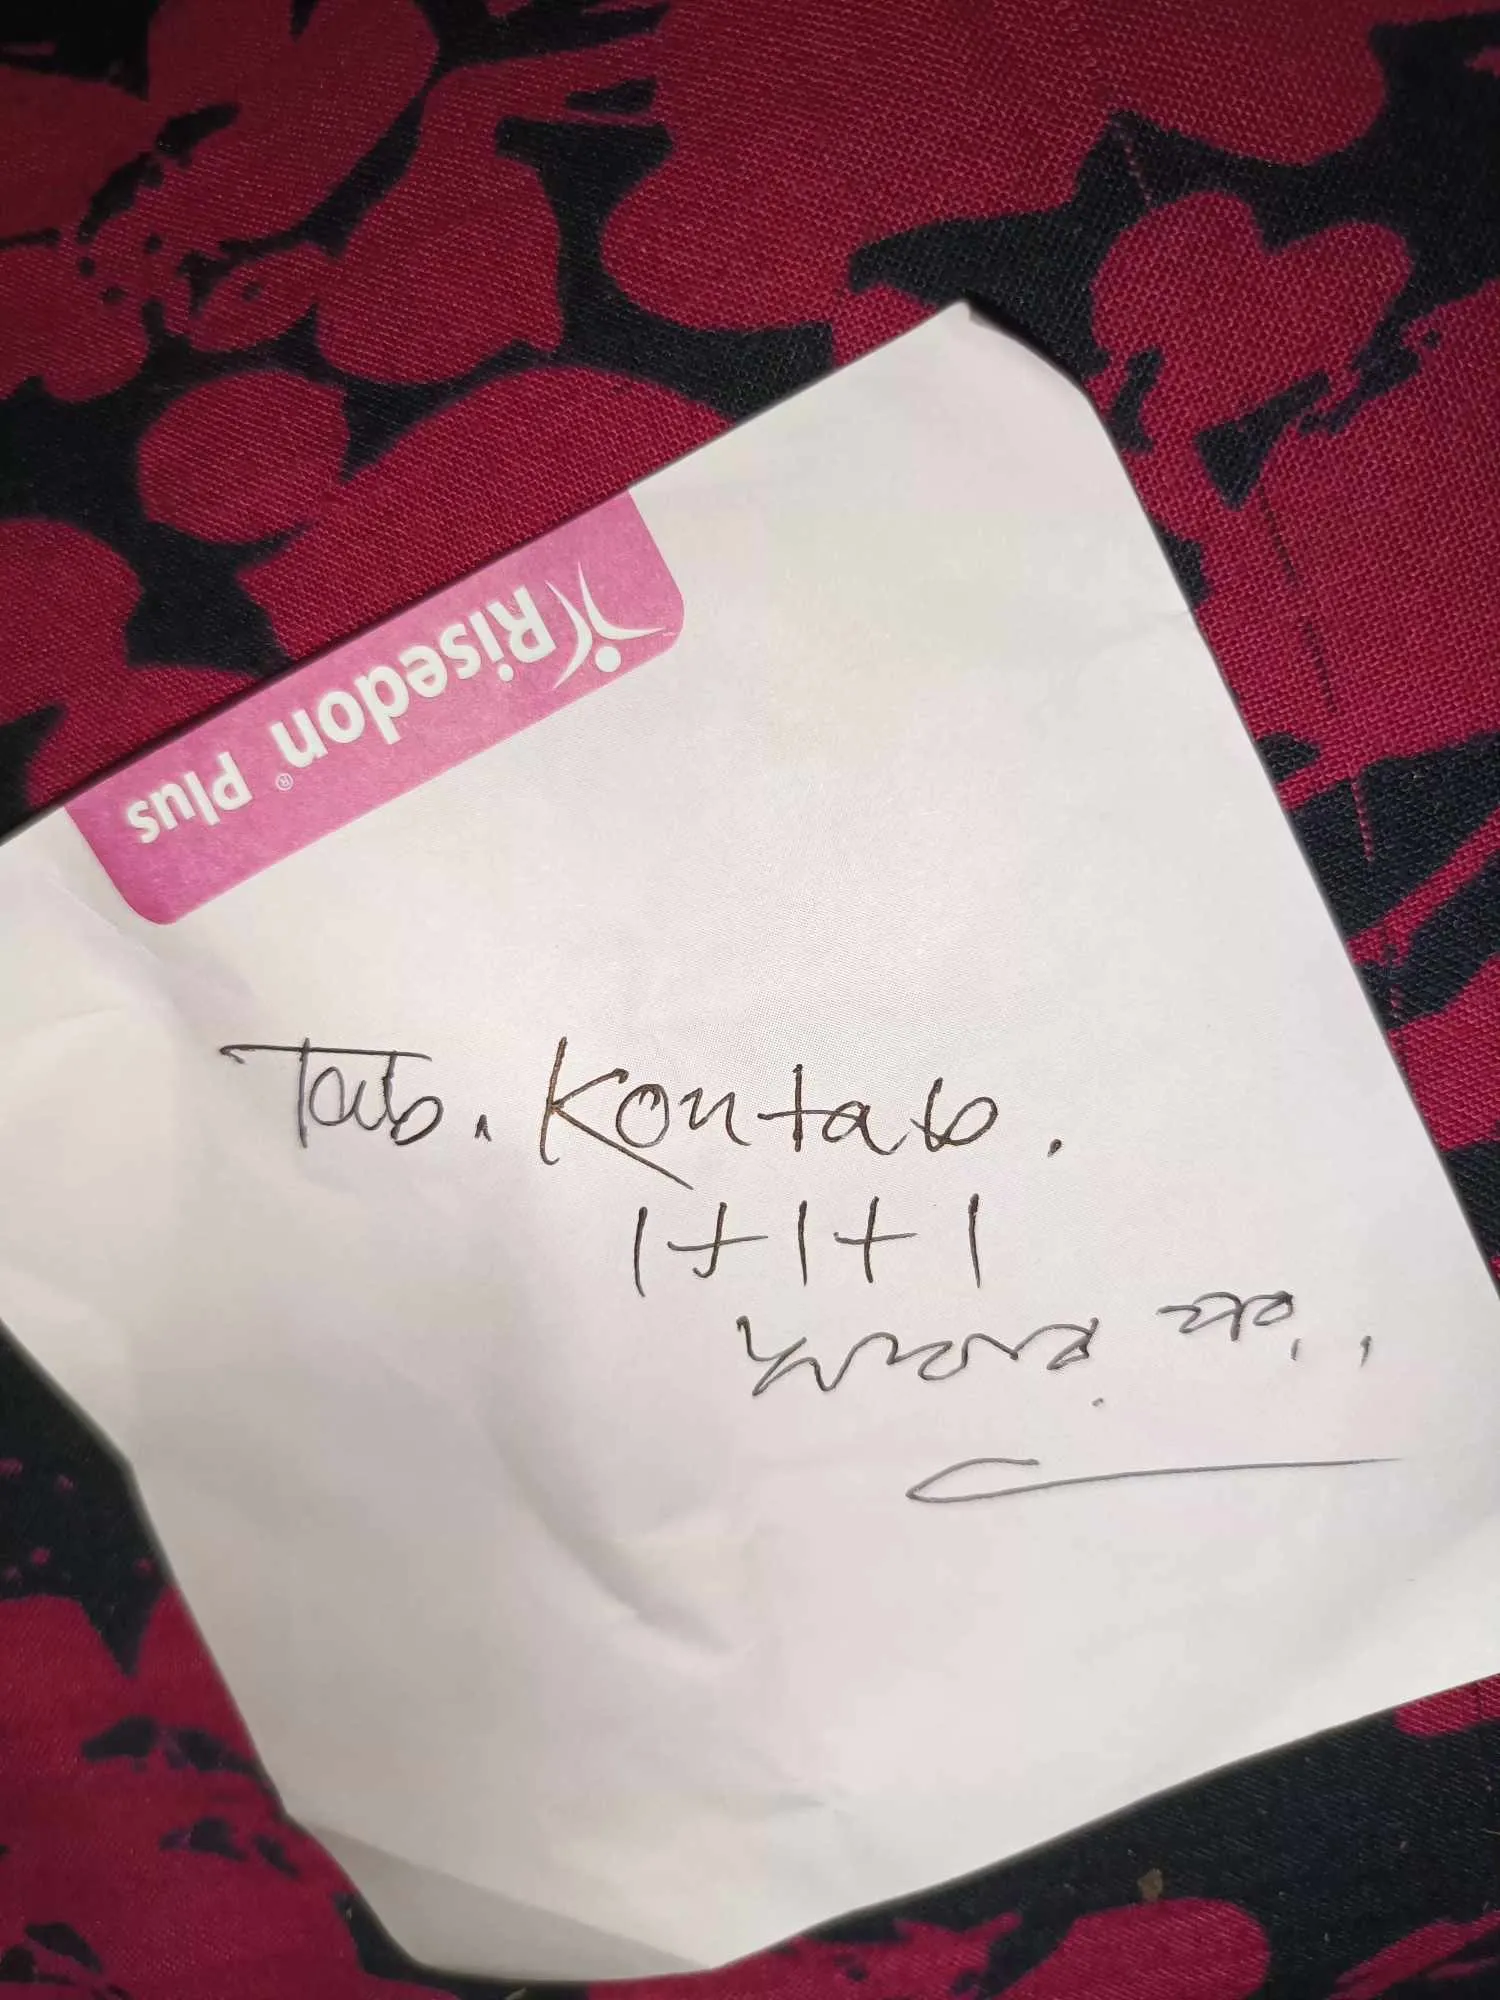 Risedon® Plus
Tab. Kontab.
1+1+1
খাবার পর..